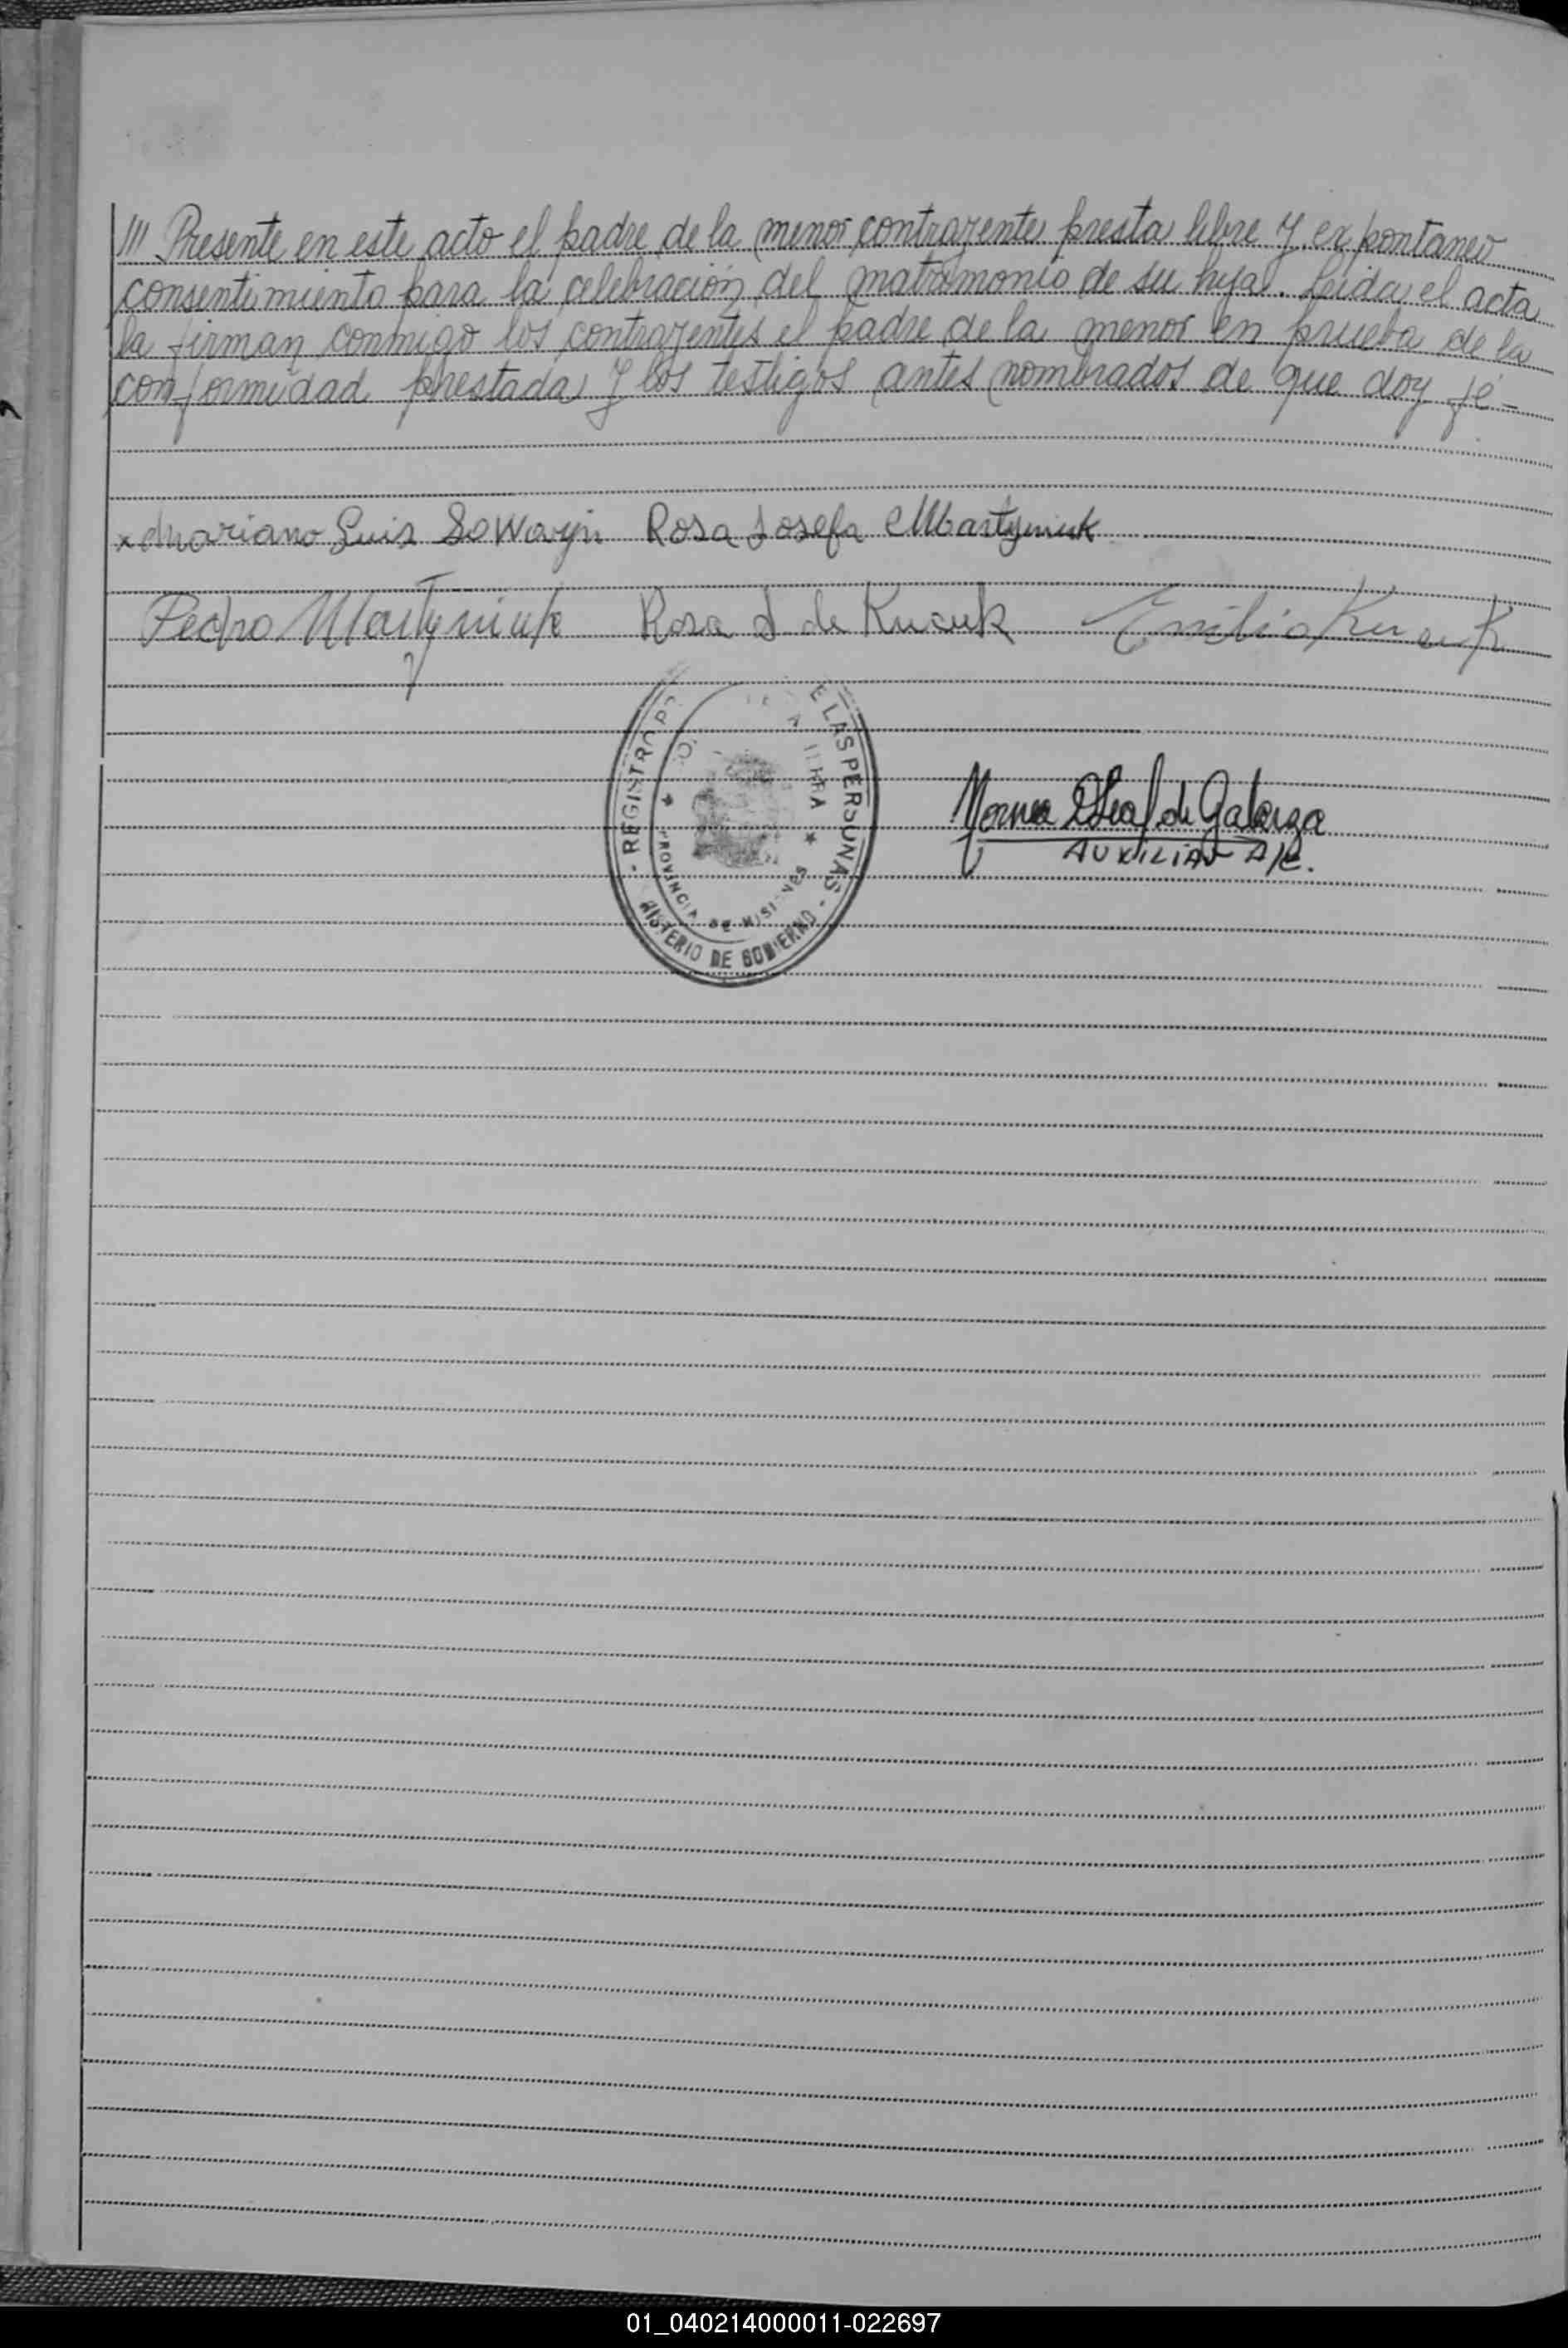 /// Presente en este acto el padre de la menor contrayente presta libre y expontaneo
consentimiento para la celebración del matrimonio de su hija. Leida el acta
la firman conmigo los contrayentes el padre de la menor en prueba de la
conformidad prestada y los testigos antes nombrados de que doy fé-
x Mariano Luis Sowayñ Rosa Josefa Martyniuk
Pedro Martyniuk Rosa de Kucuk Emilio Kucuk
- REGISTRO DE LAS PERSONAS -
PROVINCIA DE MISIONES
MISTERIO DE GOBIERNO
Norma Leal de Galarza
AUXILIAR A/C.
01_040214000011-022697